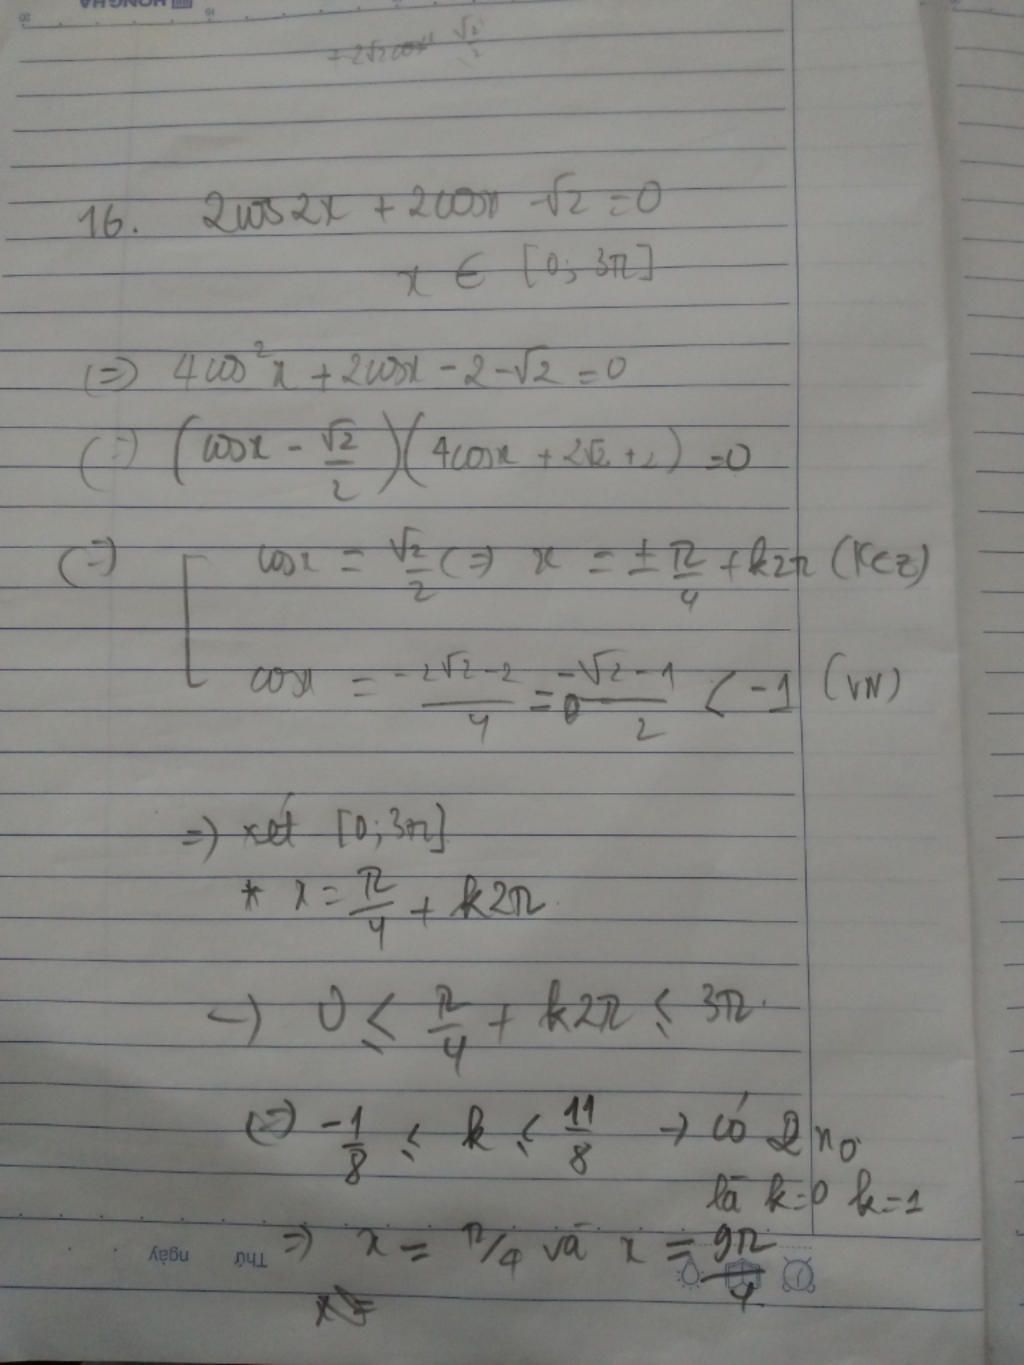 +2√2cosx √2/2
16. 2cos2x + 2cosx - √2 = 0
x ∈ [0; 3π]
(=) 4cos²x + 2cosx - 2 - √2 = 0
(=) (cosx - √2/2)(4cosx + 2√2 + 2) = 0
(=) [ cosx = √2/2 (=) x = ± π/4 + k2π (k∈Z)
cosx = (-2√2 - 2)/4 = (-√2 - 1)/2 < -1 (VN)
=) xét [0; 3π]
* x = π/4 + k2π
-) 0 ≤ π/4 + k2π ≤ 3π
(=) -1/8 ≤ k ≤ 11/8 → có 2 n₀
là k=0 k=1
=) x = π/4 và x = 9π/4
Thứ ngày
x =